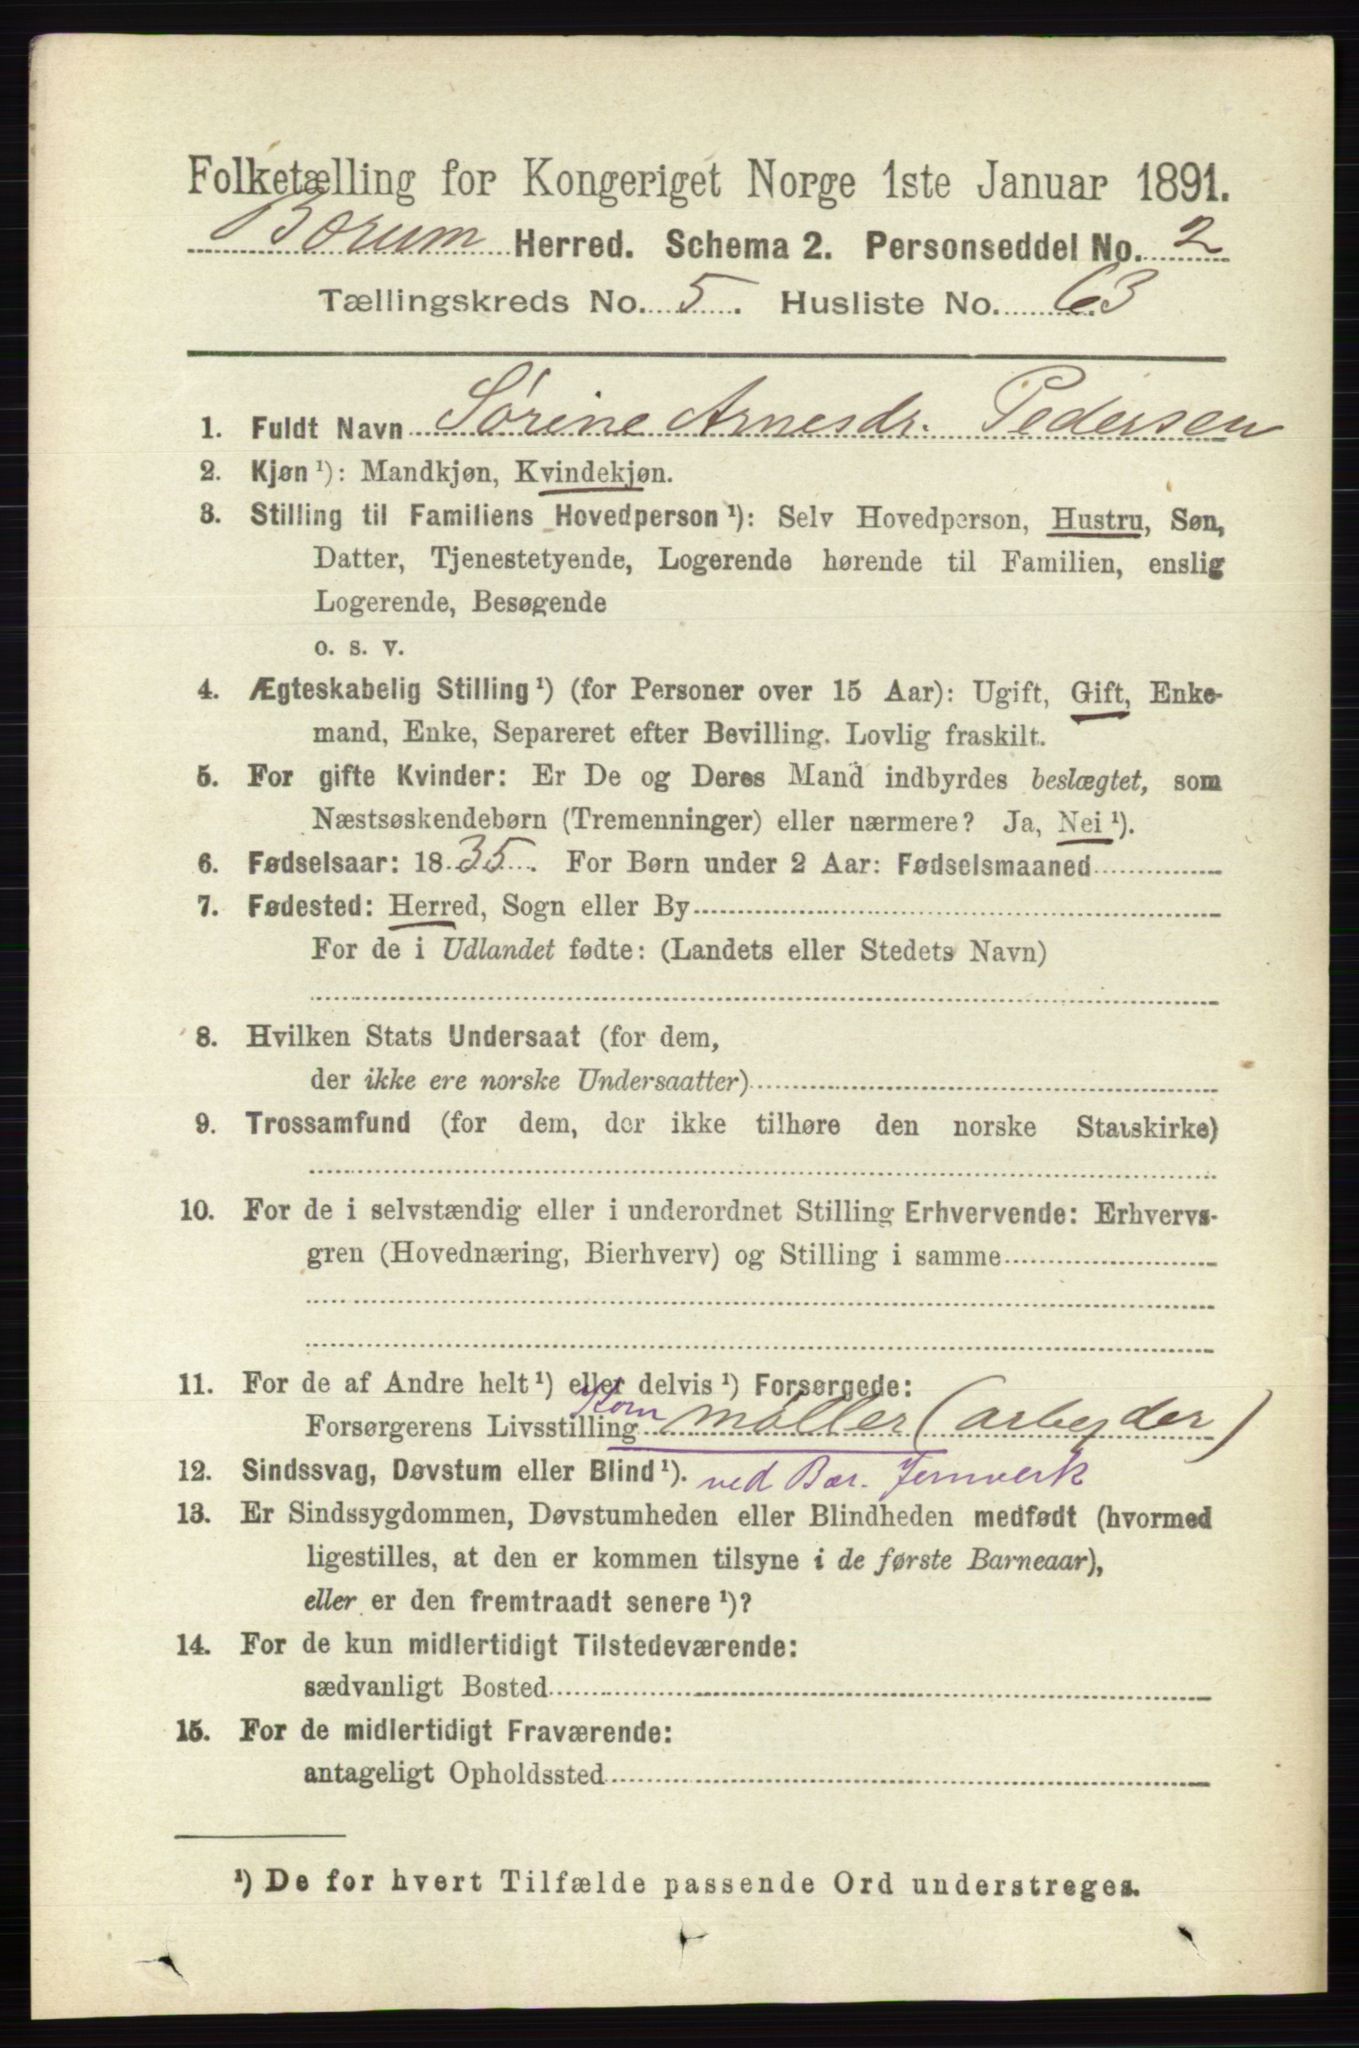 Folketælling for Kongeriget Norge 1ste Januar 1891.
Bærum Herred. Schema 2. Personseddel No. 2
Tællingskreds No. 5. Husliste No. 63
1. Fuldt Navn Sørine Arnesdr. Pedersen
2. Kjøn ¹): Mandkjøn, Kvindekjøn.
3. Stilling til Familiens Hovedperson ¹): Selv Hovedperson, Hustru, Søn,
Datter, Tjenestetyende, Logerende hørende til Familien, enslig
Logerende, Besøgende
o. s. v.
4. Ægteskabelig Stilling ¹) (for Personer over 15 Aar): Ugift, Gift, Enke-
mand, Enke, Separeret efter Bevilling. Lovlig fraskilt.
5. For gifte Kvinder: Er De og Deres Mand indbyrdes beslægtet, som
Næstsøskendebørn (Tremenninger) eller nærmere? Ja, Nei ¹).
6. Fødselsaar: 1835. For Børn under 2 Aar: Fødselsmaaned
7. Fødested: Herred, Sogn eller By
For de i Udlandet fødte: (Landets eller Stedets Navn)
8. Hvilken Stats Undersaat (for dem,
der ikke ere norske Undersaatter)
9. Trossamfund (for dem, der ikke tilhøre den norske Statskirke)
10. For de i selvstændig eller i underordnet Stilling Erhvervende: Erhvervs-
gren (Hovednæring, Bierhverv) og Stilling i samme
11. For de af Andre helt ¹) eller delvis ¹) Forsørgede:
Forsørgerens Livsstilling Korn møller (arbeyder)
12. Sindssvag, Døvstum eller Blind ¹). ved Bær. Jernverk
13. Er Sindssygdommen, Døvstumheden eller Blindheden medfødt (hvormed
ligestilles, at den er kommen tilsyne i de første Barneaar),
eller er den fremtraadt senere ¹)?
14. For de kun midlertidigt Tilstedeværende:
sædvanligt Bosted
15. For de midlertidigt Fraværende:
antageligt Opholdssted
¹) De for hvert Tilfælde passende Ord understreges.